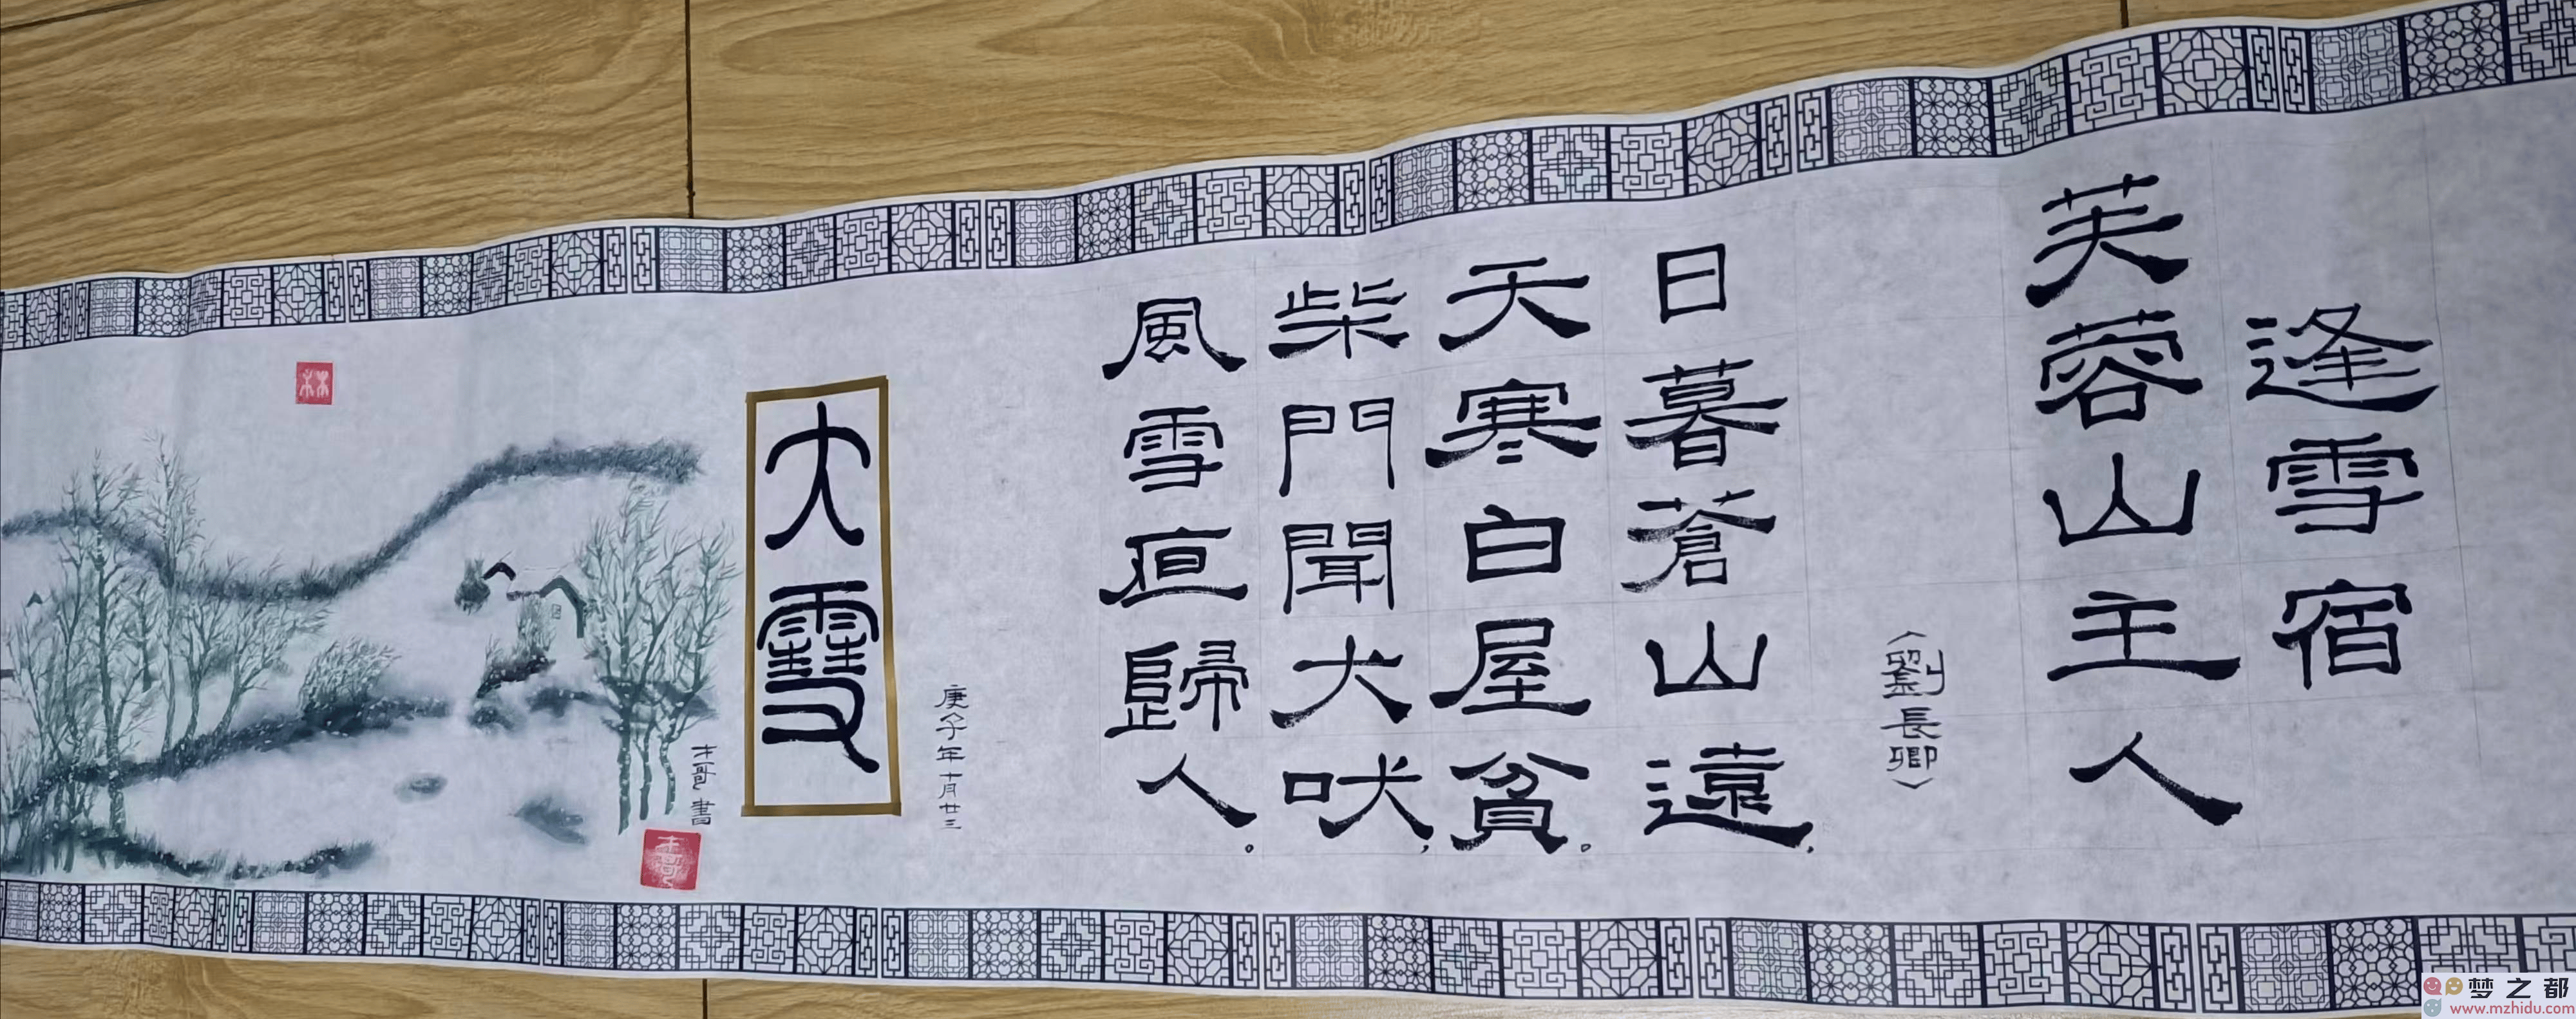 逢雪宿
芙蓉山主人
〈劉長卿〉
日暮蒼山遠，
天寒白屋貧。
柴門聞犬吠，
風雪亱歸人。
庚子年十月廿三
大雪
才哥書
林
梦之都
www.mzhidu.com